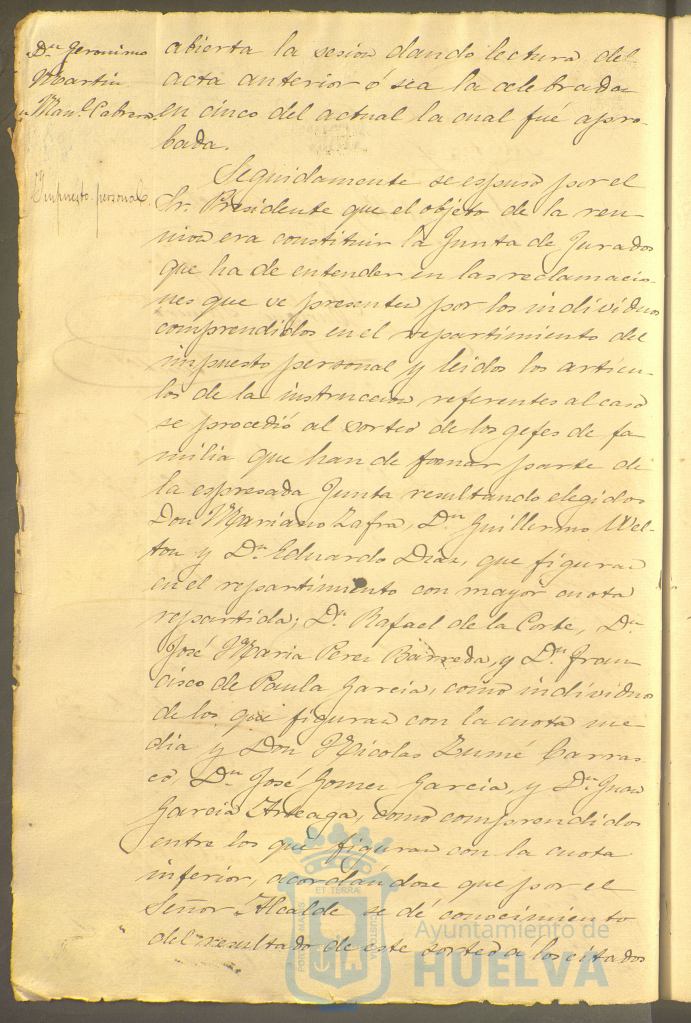 Dn Geronimo
Martin
Manl. Cabrera
Impuesto personal
abierta la sesion dando lectura del
acta anterior ó sea la celebrada
en cinco del actual la cual fué apro-
bada.
Seguidamente se espuso por el
Sr. Presidente que el objeto de la reu-
nion era constituir la Junta de Jurados
que ha de entender en las reclamacio-
nes que se presenten por los individuos
comprendidos en el repartimiento del
impuesto personal y leidos los articu-
los de la instruccion referentes al caso
se procedió al sorteo de los gefes de fa-
milia que han de formar parte de
la espresada Junta resultando elegidos
Don Mariano Zafra, Dn Guillermo Wel-
ton y Dn Eduardo Diaz, que figuran
en el repartimiento con mayor cuota
repartida; Dn Rafael de la Corte, Dn
José Maria Perez Barreda, y Dn Fran-
cisco de Paula Garcia, como individuos
de los que figuran con la cuota me-
dia y Don Nicolas Zumé Carras-
co, Dn José Gomez Garcia, y Dn Juan
Garcia Arteaga, como comprendidos
entre los que figuran con la cuota
inferior, acordandose que por el
Señor Alcalde se dé conocimiento
del resultado de este sorteo á los citados
ET TERRAE
Ayuntamiento de
HUELVA